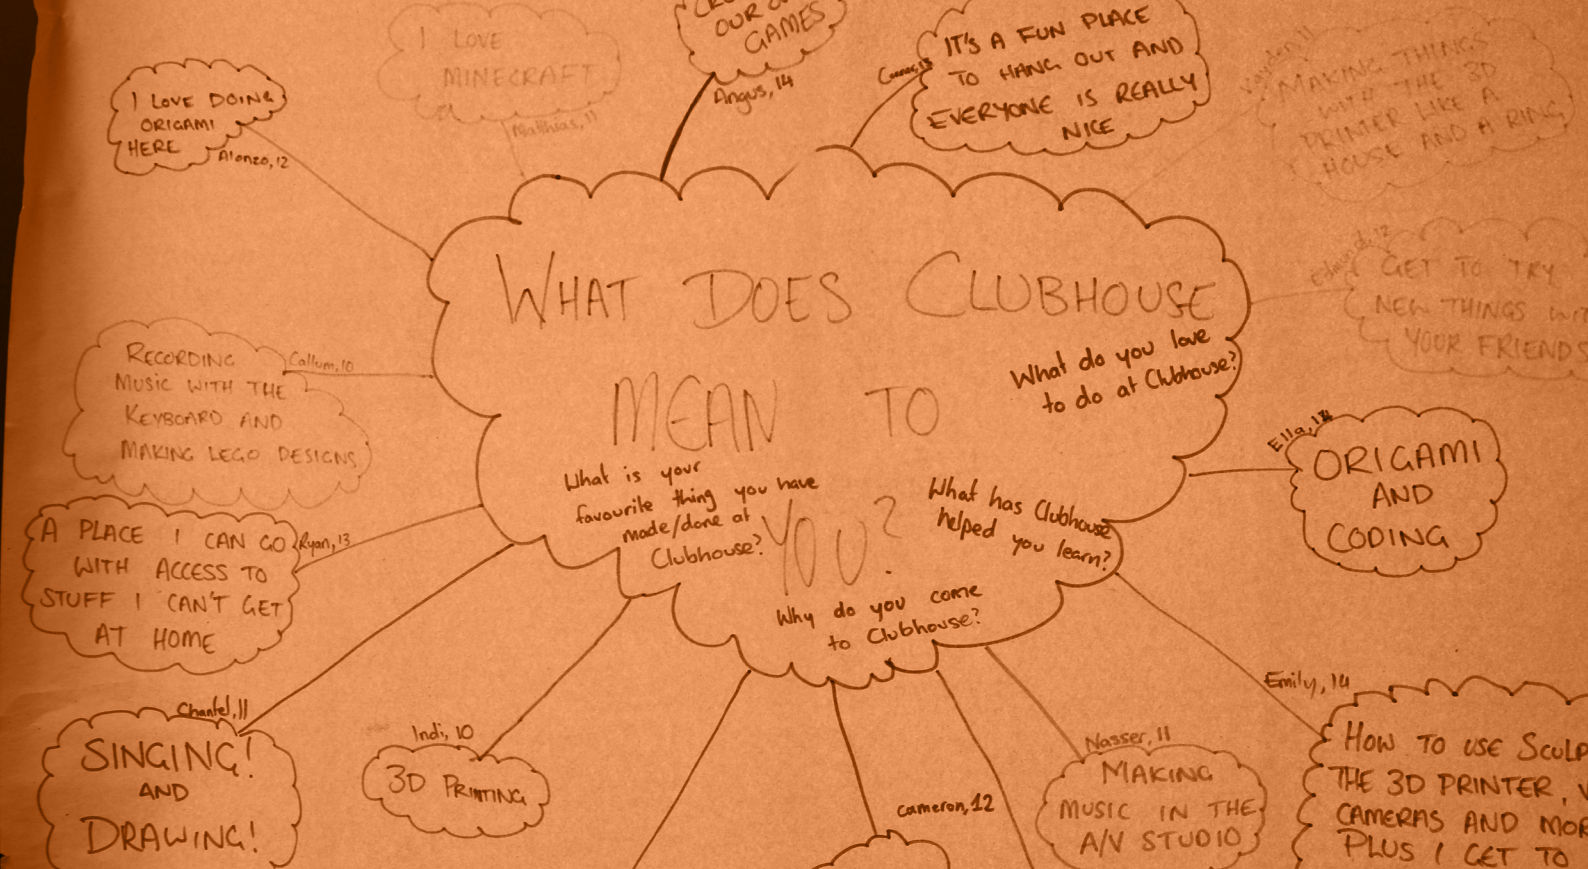 OUR
GAMES
Angus, 14
I LOVE
MINECRAFT
Matthias, 11
I LOVE DOING
ORIGAMI
HERE
Alonzo, 12
IT'S A FUN PLACE
TO HANG OUT AND
EVERYONE IS REALLY
NICE
MAKING THINGS
WITH THE 3D
PRINTER LIKE A
HOUSE AND A RING
Edmund, 12
GET TO TRY
NEW THINGS
YOUR FRIENDS
WHAT DOES CLUBHOUSE
MEAN TO
YOU?
What do you love
to do at Clubhouse?
What is your
favourite thing you have
made/done at
Clubhouse?
What has Clubhouse
helped you learn?
Why do you come
to Clubhouse?
Callum, 10
RECORDING
MUSIC WITH THE
KEYBOARD AND
MAKING LEGO DESIGNS
Ella,
ORIGAMI
AND
CODING
Ryan, 13
A PLACE I CAN GO
WITH ACCESS TO
STUFF I CAN'T GET
AT HOME
Chantel, 11
SINGING!
AND
DRAWING!
Indi, 10
3D PRINTING
Cameron, 12
Nasser, 11
MAKING
MUSIC IN THE
A/V STUDIO
Emily, 14
HOW TO USE
THE 3D PRINTER,
CAMERAS AND
PLUS I GET TO